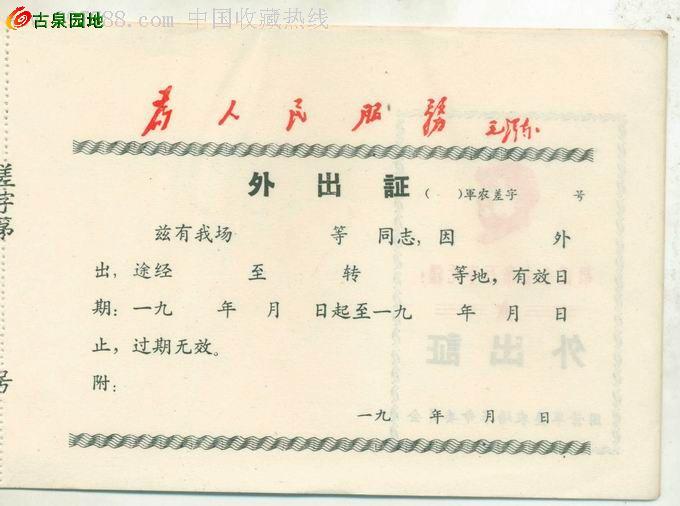 古泉园地
88.com 中国收藏热线
為人民服務 毛泽东
外出証 （ ）軍农差字 号
兹有我场 等 同志，因 外
出，途经 至 转 等地，有效日
期：一九 年 月 日起至一九 年 月 日
止，过期无效。
附：
一九 年 月 日
差字第 号
外出証